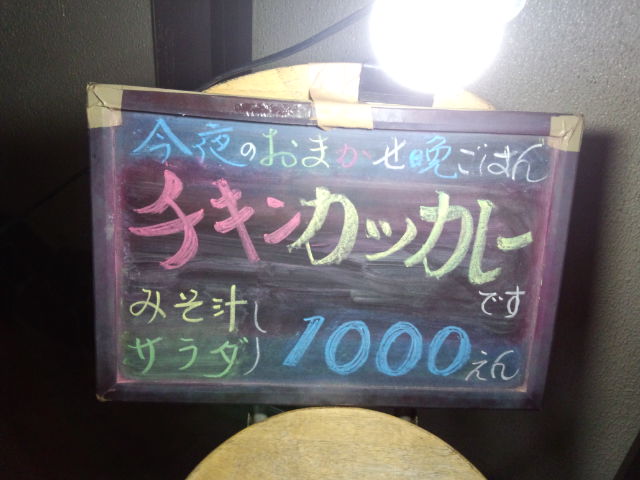 今夜のおまかせ晩ごはん
チキンカツカレー
です
みそ汁
サラダ
1000えん